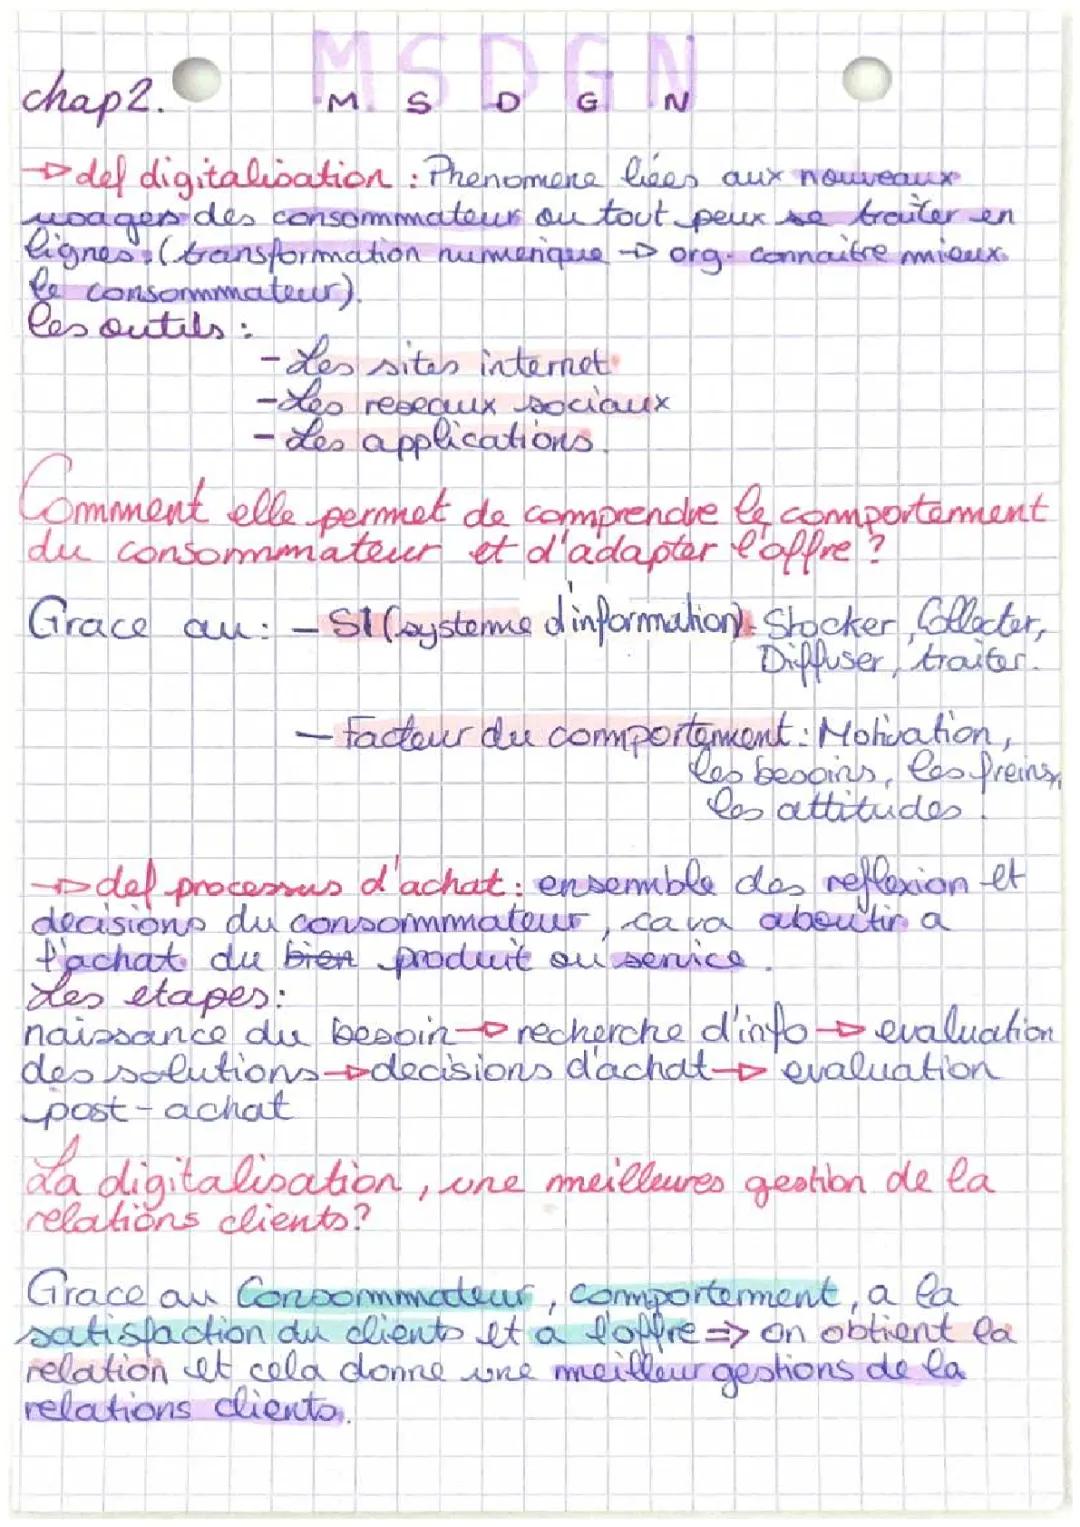 MSDGN
chap 2. M S D G N
→ def digitalisation : Phenomene liées aux nouveaux
usages des consommateur ou tout peux se traiter en
lignes. (transformation numerique → org. connaitre mieux
le consommateur).
les outils :
- Les sites internet
- Les reseaux sociaux
- Les applications.
Comment elle permet de comprendre le comportement
du consommateur et d'adapter l'offre ?
Grace au : - SI (systeme d'information): Stocker, Collecter,
Diffuser, traiter.
- Facteur du comportement : Motivation,
les besoins, les freins,
les attitudes.
→ def processus d'achat : ensemble des reflexion et
decisions du consommateur, ca va aboutir a
l'achat du bien produit ou service.
Les etapes :
naissance du besoin → recherche d'info → evaluation
des solutions → decisions d'achat → evaluation
post-achat
La digitalisation, une meilleures gestion de la
relations clients ?
Grace au Consommateur, comportement, a la
satisfaction du clients et a l'offre => on obtient la
relation et cela donne une meilleur gestions de la
relations clients.